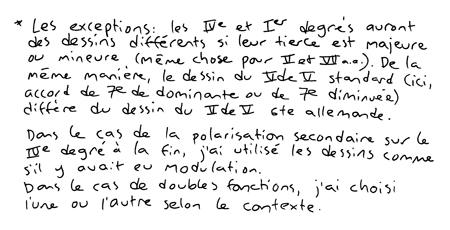 * Les exceptions: les IVe et Ier degrés auront
des dessins différents si leur tierce est majeure
ou mineure (même chose pour II et VII n.a.). De la
même manière, le dessin du V de V standard (ici,
accord de 7e de dominante ou de 7e diminuée)
diffère du dessin du V de V 6te allemande.
Dans le cas de la polarisation secondaire sur le
IVe degré à la fin, j'ai utilisé les dessins comme
s'il y avait eu modulation.
Dans le cas de doubles fonctions, j'ai choisi
l'une ou l'autre selon le contexte.